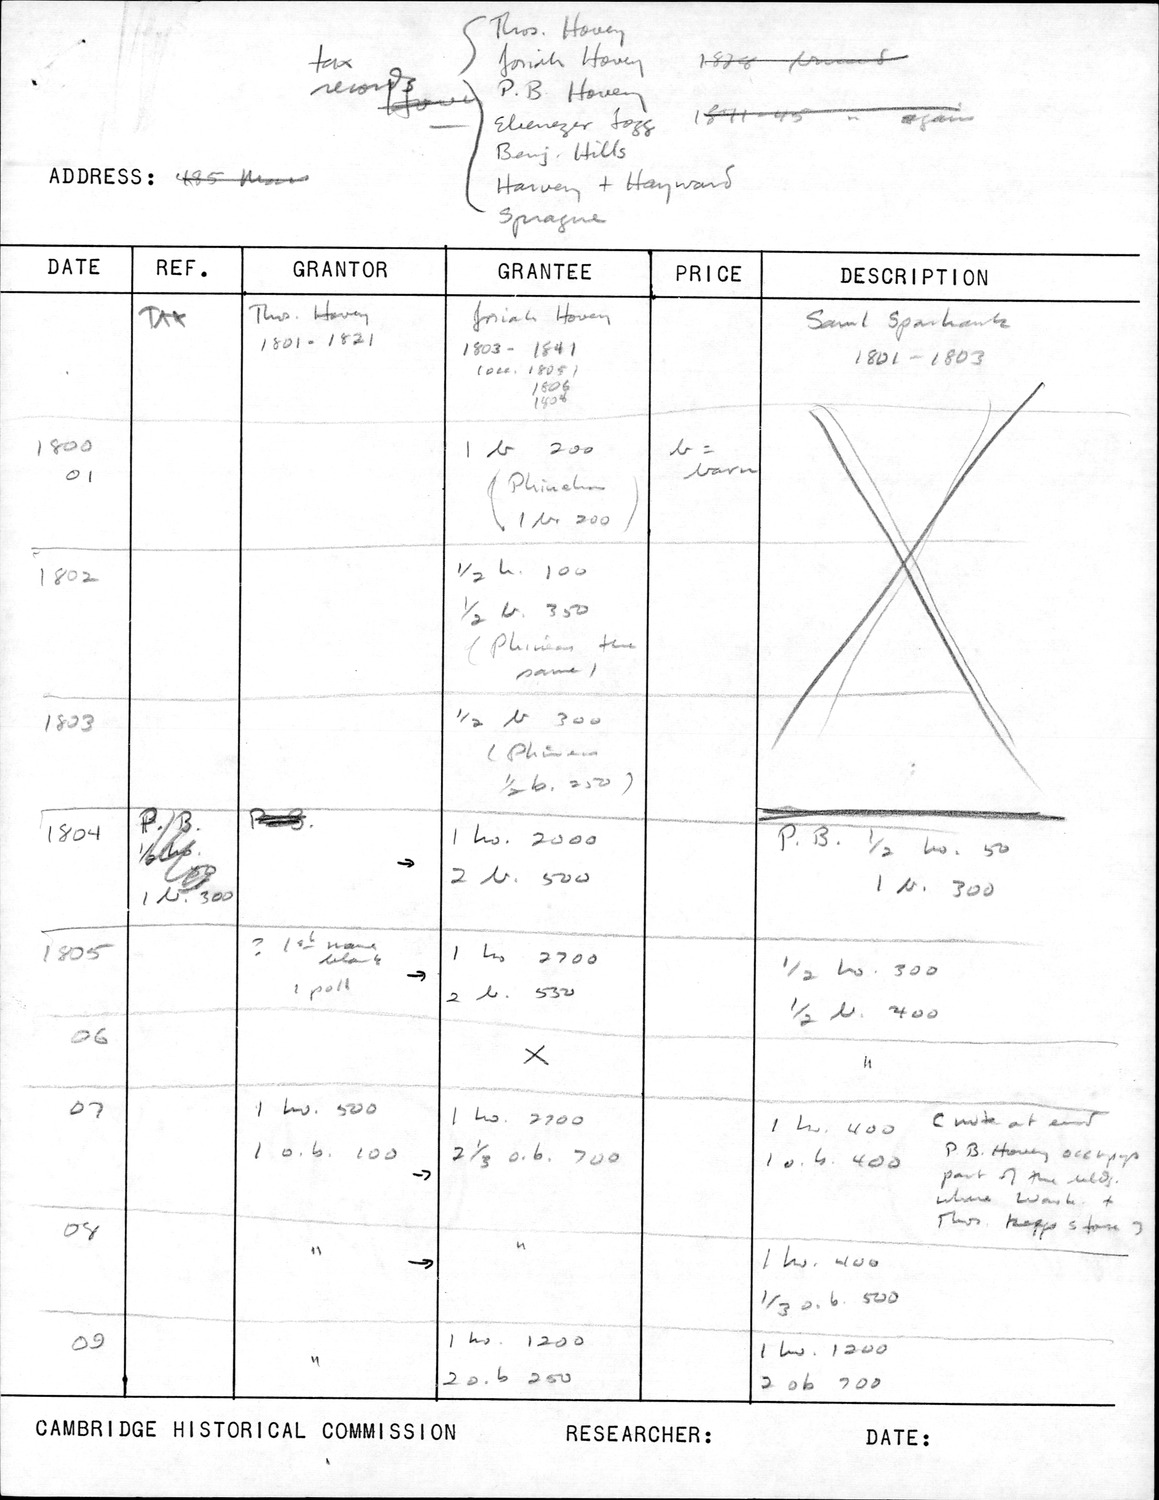 Thos. Hovey
tax Josiah Hovey 1828
records P.B. Hovey
Ebenezer Fogg 1841-45 " again
Benj. Hills
ADDRESS: 485 Main Harvey + Hayward
Sprague
DATE REF. GRANTOR GRANTEE PRICE DESCRIPTION
TAX Thos. Hovey Josiah Hovey Saml Sparhawk
1801-1821 1803-1841 1801-1803
(occ. 1805)
1806
1808
1800 1 b 200 b =
01 (Phinehas barn
1 b. 200)
1802 1/2 h. 100
1/2 b. 350
(Phineas the
same)
1803 1/2 b 300
(Phineas
1/2 b. 250)
1804 P. B. P. B. 1 ho. 2000 P. B. 1/2 ho. 50
1/2 ho. → 2 b. 500 1 b. 300
1 b. 300
1805 ? 1st name 1 ho 2700 1/2 ho. 300
blank → 2 b. 530 1/2 b. 400
1 poll
06 X "
07 1 ho. 500 1 ho. 2700 1 ho. 400 [note at end
1 o.b. 100 → 2 1/3 o.b. 700 1 o.b. 400 P.B. Hovey occupys
part of the bldg.
where Wash. +
Thos. kepp store]
08 " → " 1 ho. 400
1/3 o.b. 500
09 " 1 ho. 1200 1 ho. 1200
2 o.b 250 2 ob 700
CAMBRIDGE HISTORICAL COMMISSION RESEARCHER: DATE: